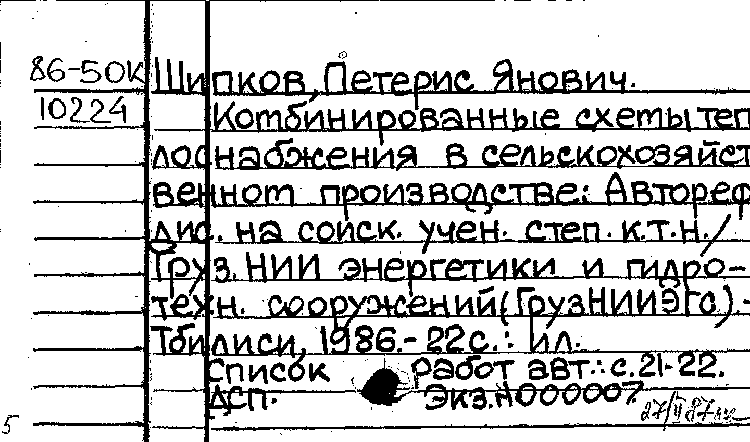 86-50К Шипков, Петерис Янович.
10224 Комбинированные схемы теп
лоснабжения в сельскохозяйст
венном производстве: Автореф
дис. на соиск. учен. степ. к.т.н./
Груз. НИИ энергетики и гидро-
техн. сооружений (ГрузНИИЭГС).-
Тбилиси, 1986.- 22 с.: ил.
Список работ авт.: с. 21-22.
ДСП. Экз.№000007
5